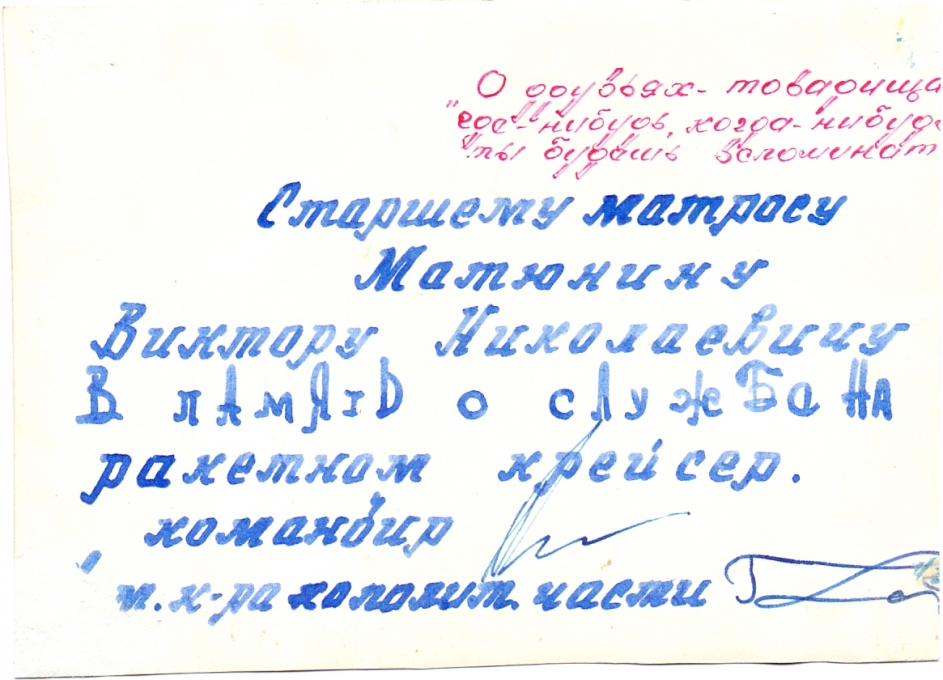 О друзьях-товарища
"где-нибудь, когда-нибудь
ты будешь вспоминат
Старшему матросу
Матюнину
Виктору Николаевичу
В ПАМЯТЬ О СЛУЖБЕ НА
ракетном крейсер.
командир
т. к-ра по полит. части